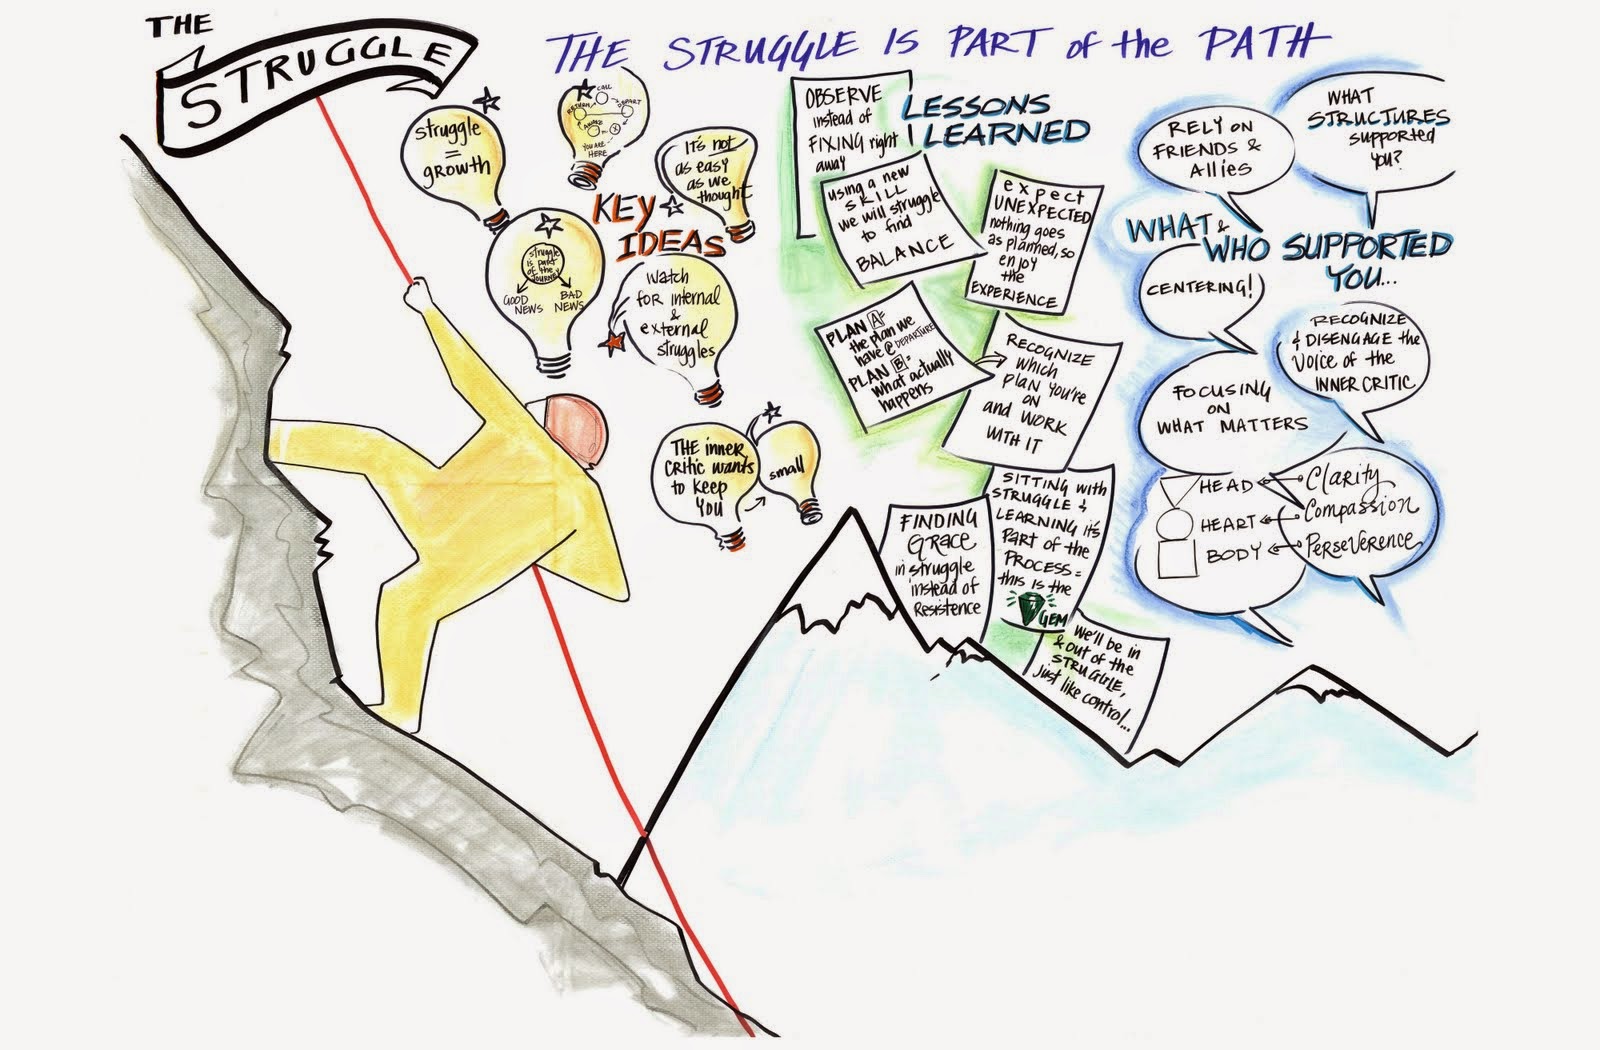 THE
STRUGGLE
THE STRUGGLE IS PART of the PATH
struggle
=
growth
CALL
DEPART
RETURN
YOU ARE
HERE
It's not
as easy
as we
thought
KEY
IDEAS
struggle
is part
of the
JOURNEY
GOOD
NEWS
BAD
NEWS
Watch
for internal
&
external
struggles
THE inner
critic wants
to keep
YOU
small
LESSONS
LEARNED
OBSERVE
instead of
FIXING right
away
using a new
SKILL
we will struggle
to find
BALANCE
expect
UNEXPECTED
nothing goes
as planned, so
enjoy
the
EXPERIENCE
PLAN A=
the plan we
have @ DEPARTURE
PLAN B=
what actually
happens
RECOGNIZE
which
PLAN you're
ON
and WORK
WITH IT
FINDING
GRACE
in struggle
instead of
Resistence
SITTING with
STRUGGLE &
LEARNING it's
PART of the
PROCESS=
this is the
GEM
We'll be in
& out of the
STRUGGLE,
just like control...
WHAT &
WHO SUPPORTED
YOU...
RELY ON
FRIENDS &
Allies
WHAT
STRUCTURES
supported
you?
CENTERING!
RECOGNIZE
& DISENGAGE the
Voice of the
INNER CRITIC
FOCUSING
ON
WHAT MATTERS
HEAD
Clarity
HEART
Compassion
BODY
PERSEVERENCE